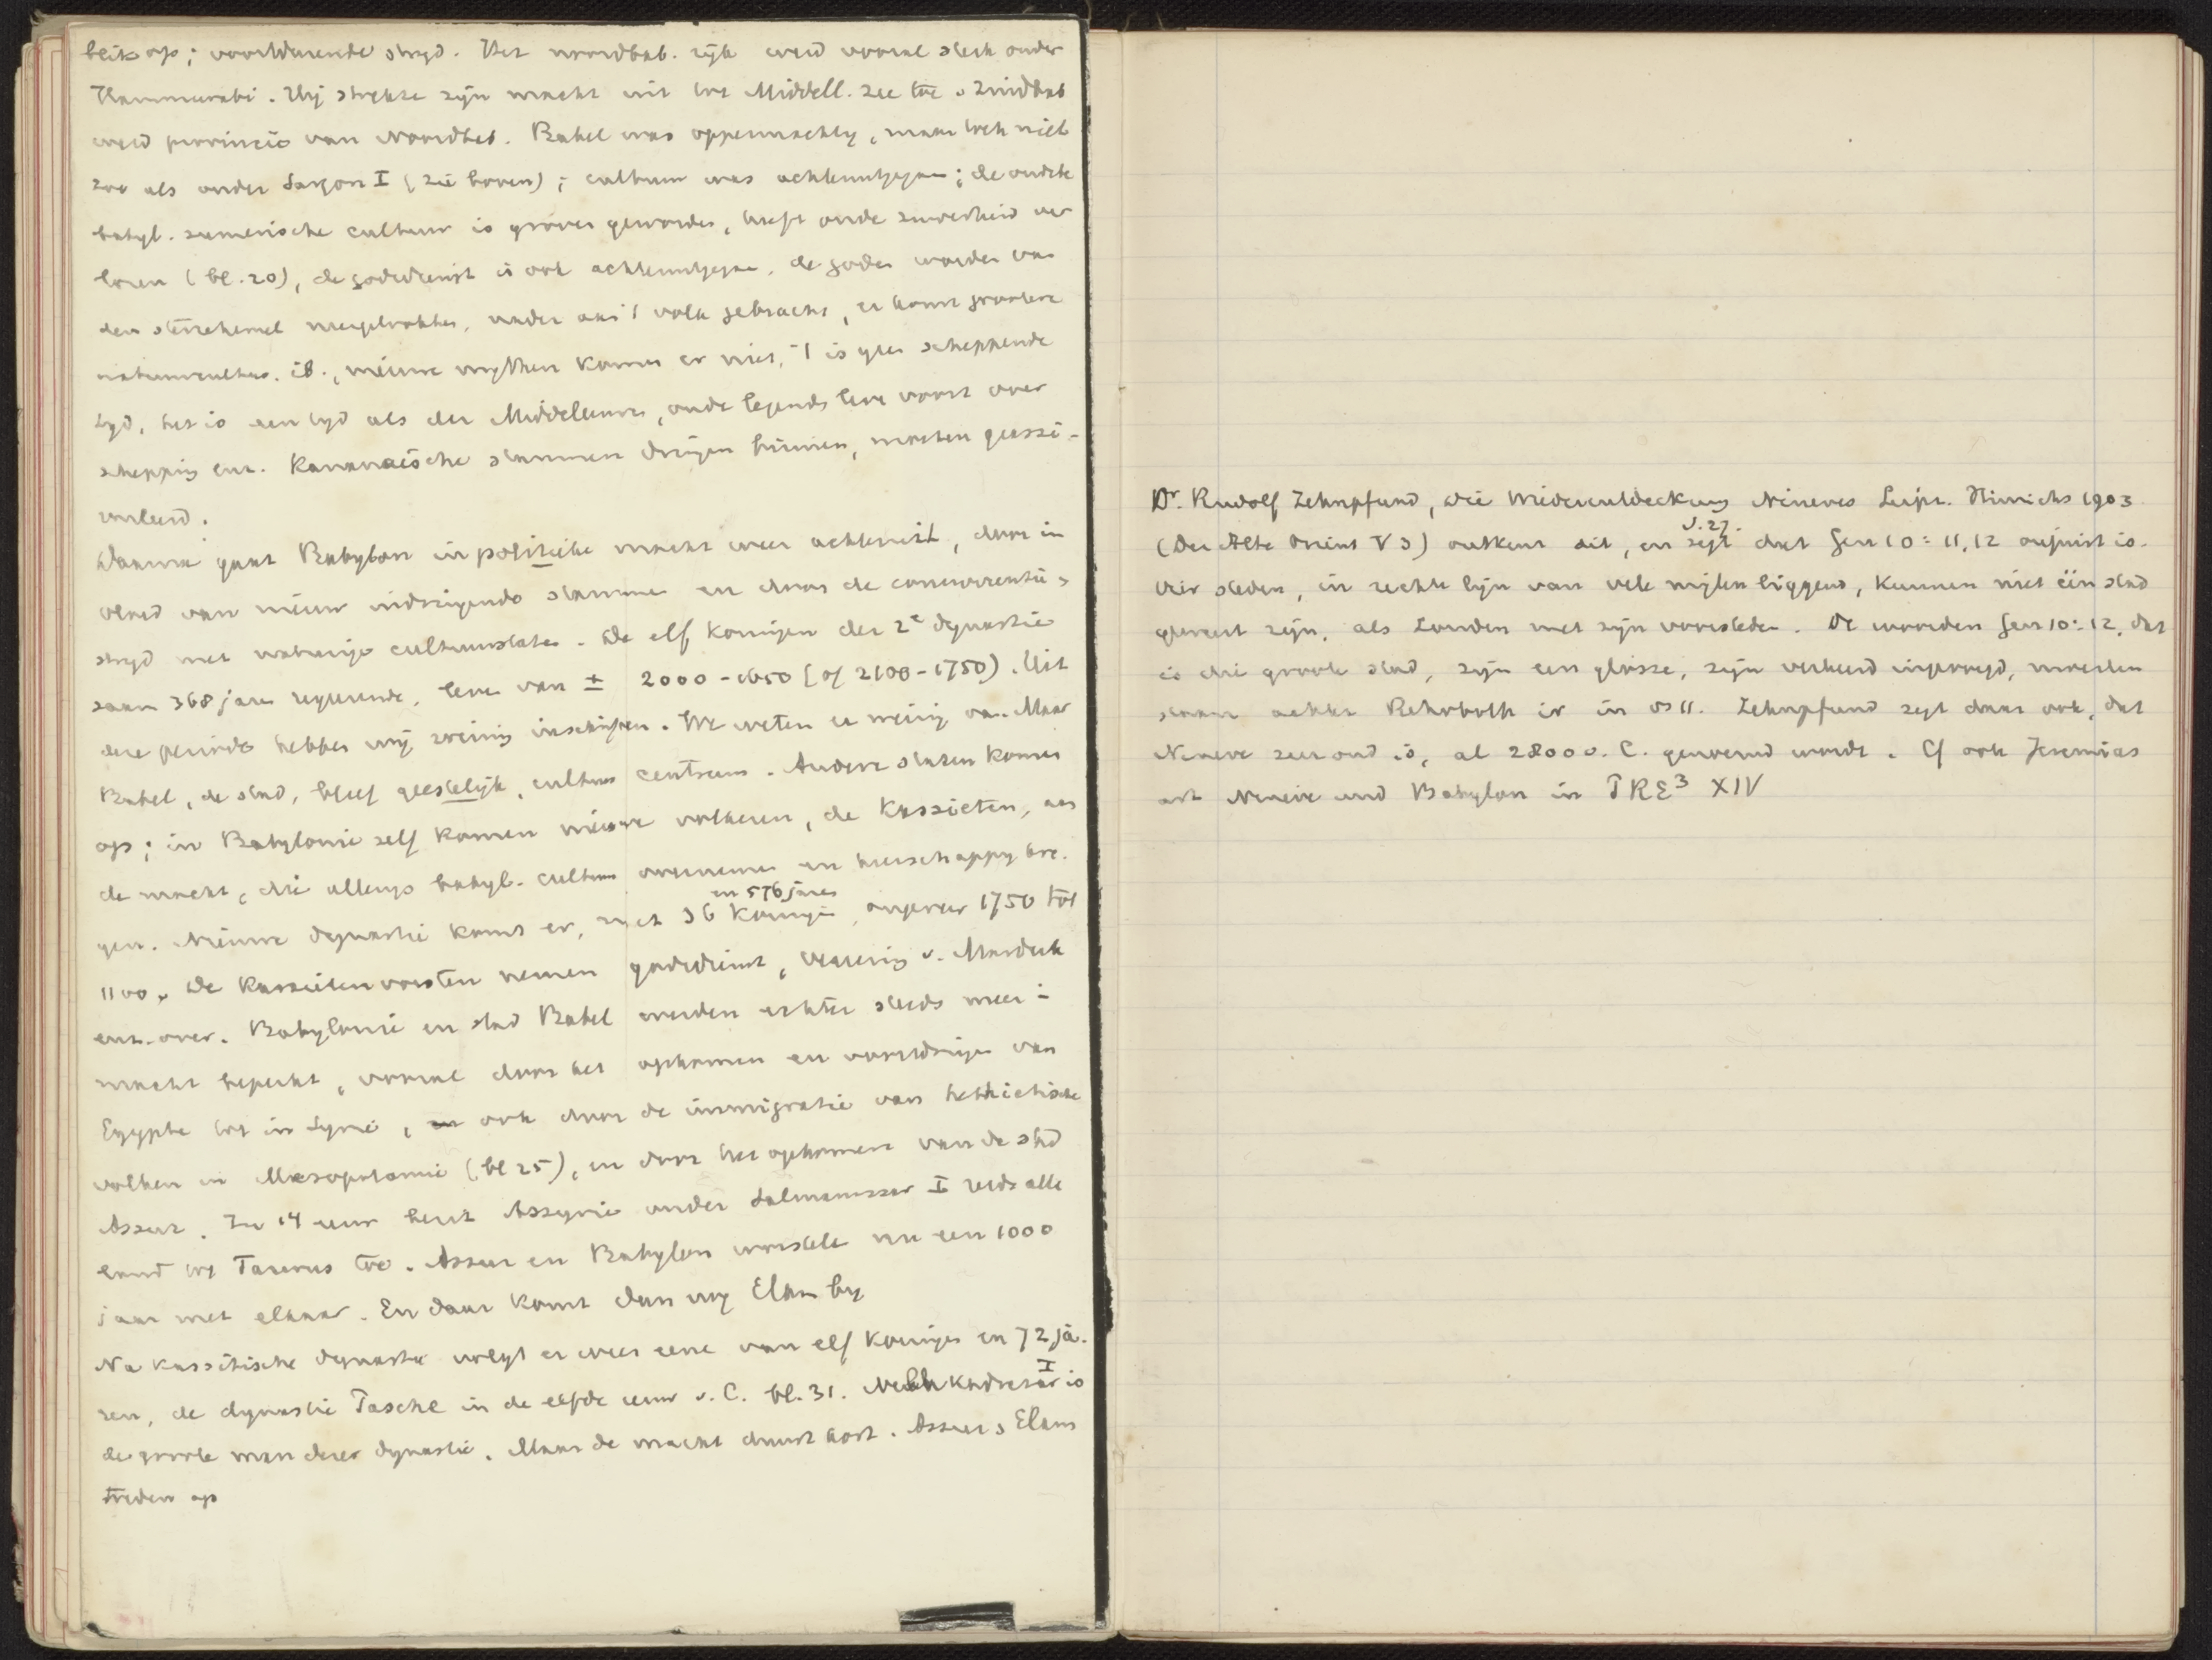 blik op; voortdurende stryd. Het noordbab. rijk werd vooral sterk onder
Hammurabi. Hij strekte zijn macht uit tot Middell. zee toe & Zuidbab
werd provincie van Noordbab. Babel was oppermachtig, maar toch niet
zoo als onder Sargon I (zie boven); cultuur was achteruitgegaan; de oudste
babyl. sumerische cultuur is grover geworden, heeft oude zuiverheid ver
loren (bl. 20), de godsdienst is ook achteruitgegaan, de goden worden van
den sterrehemel weggetrokken, nader aan 't volk gebracht, er komt grootere
natuurcultus. ib., nieuwe mythen komen er niet, 't is geen scheppende
tyd, het is een tyd als der Middeleeuwen, oude legends leven voort over
schepping enz. Kanaänaische stammen dringen binnen, worden geassi-
mileerd.
Daarna gaat Babylon in politieke macht weer achteruit, door in
vloed van nieuw indringende stammen en door de concurrentie &
stryd met naburige cultuurstaten. De elf koningen der 2e dynastie
saam 368 jaren regeerende, leven van ± 2000-1650 [of 2100-1750). Uit
deze periode hebben wij weinig inschriften. We weten er weinig van. Maar
Babel, de stad, bleef geestelijk, cultuur centrum. Andere staten komen
op; in Babylonie zelf komen nieuwe volkeren, de Kassieten, aan
de macht, die allengs babyl. cultuur overnemen en heerschappy kre-
gen. Nieuwe dynastie komt er, met 36 koningen in 576 jaren, ongeveer 1750 tot
1100. De Kassieten vorsten nemen godsdienst, vereering v. Marduk
enz. over. Babylonie en stad Babel werden echter steeds meer in
macht beperkt, vooral door het opkomen en voortdringen van
Egypte tot in Syrië, ook door de immigratie van hethietische
volken in Mesopotamie (bl 25), en door het opkomen van de stad
Assur. In 14 eeuw bezit Assyrie onder Salmanassar I reeds alle
land tot Taurus toe. Assur en Babylon worstelen nu een 1000
jaar met elkaar. En daar komt dan nog Elam by
Na kassitische dynastie volgt er weer eene van elf koningen in 72 ja-
ren, de dynastie Pasche in de elfde eeuw v. C. bl. 31. Nebukadnezar I is
de groote man dezer dynastie. Maar de macht duurt kort. Assur & Elam
treden op
Dr. Rudolf Zehnpfund, Die Wiederentdeckung Nineves Leipz. Hinrichs 1903
(Der Alte Orient V 3) ontkent dit, en zegt S. 27. dat Gen 10: 11, 12 onjuist is.
Vier steden, in rechte lijn van vele mijlen liggend, kunnen niet één stad
geweest zijn, als Londen met zijn voorsteden. De woorden Gen 10:12, dat
is die groote stad, zijn een glosse, zijn verkeerd ingevoegd, moesten
staan achter Rehoboth ir in vs 11. Zehnpfund zegt daar ook, dat
Nineve zeer oud is, al 2800 v. C. genoemd wordt. Cf ook Jeremias
art Nineve und Babylon in PRE3 XIV